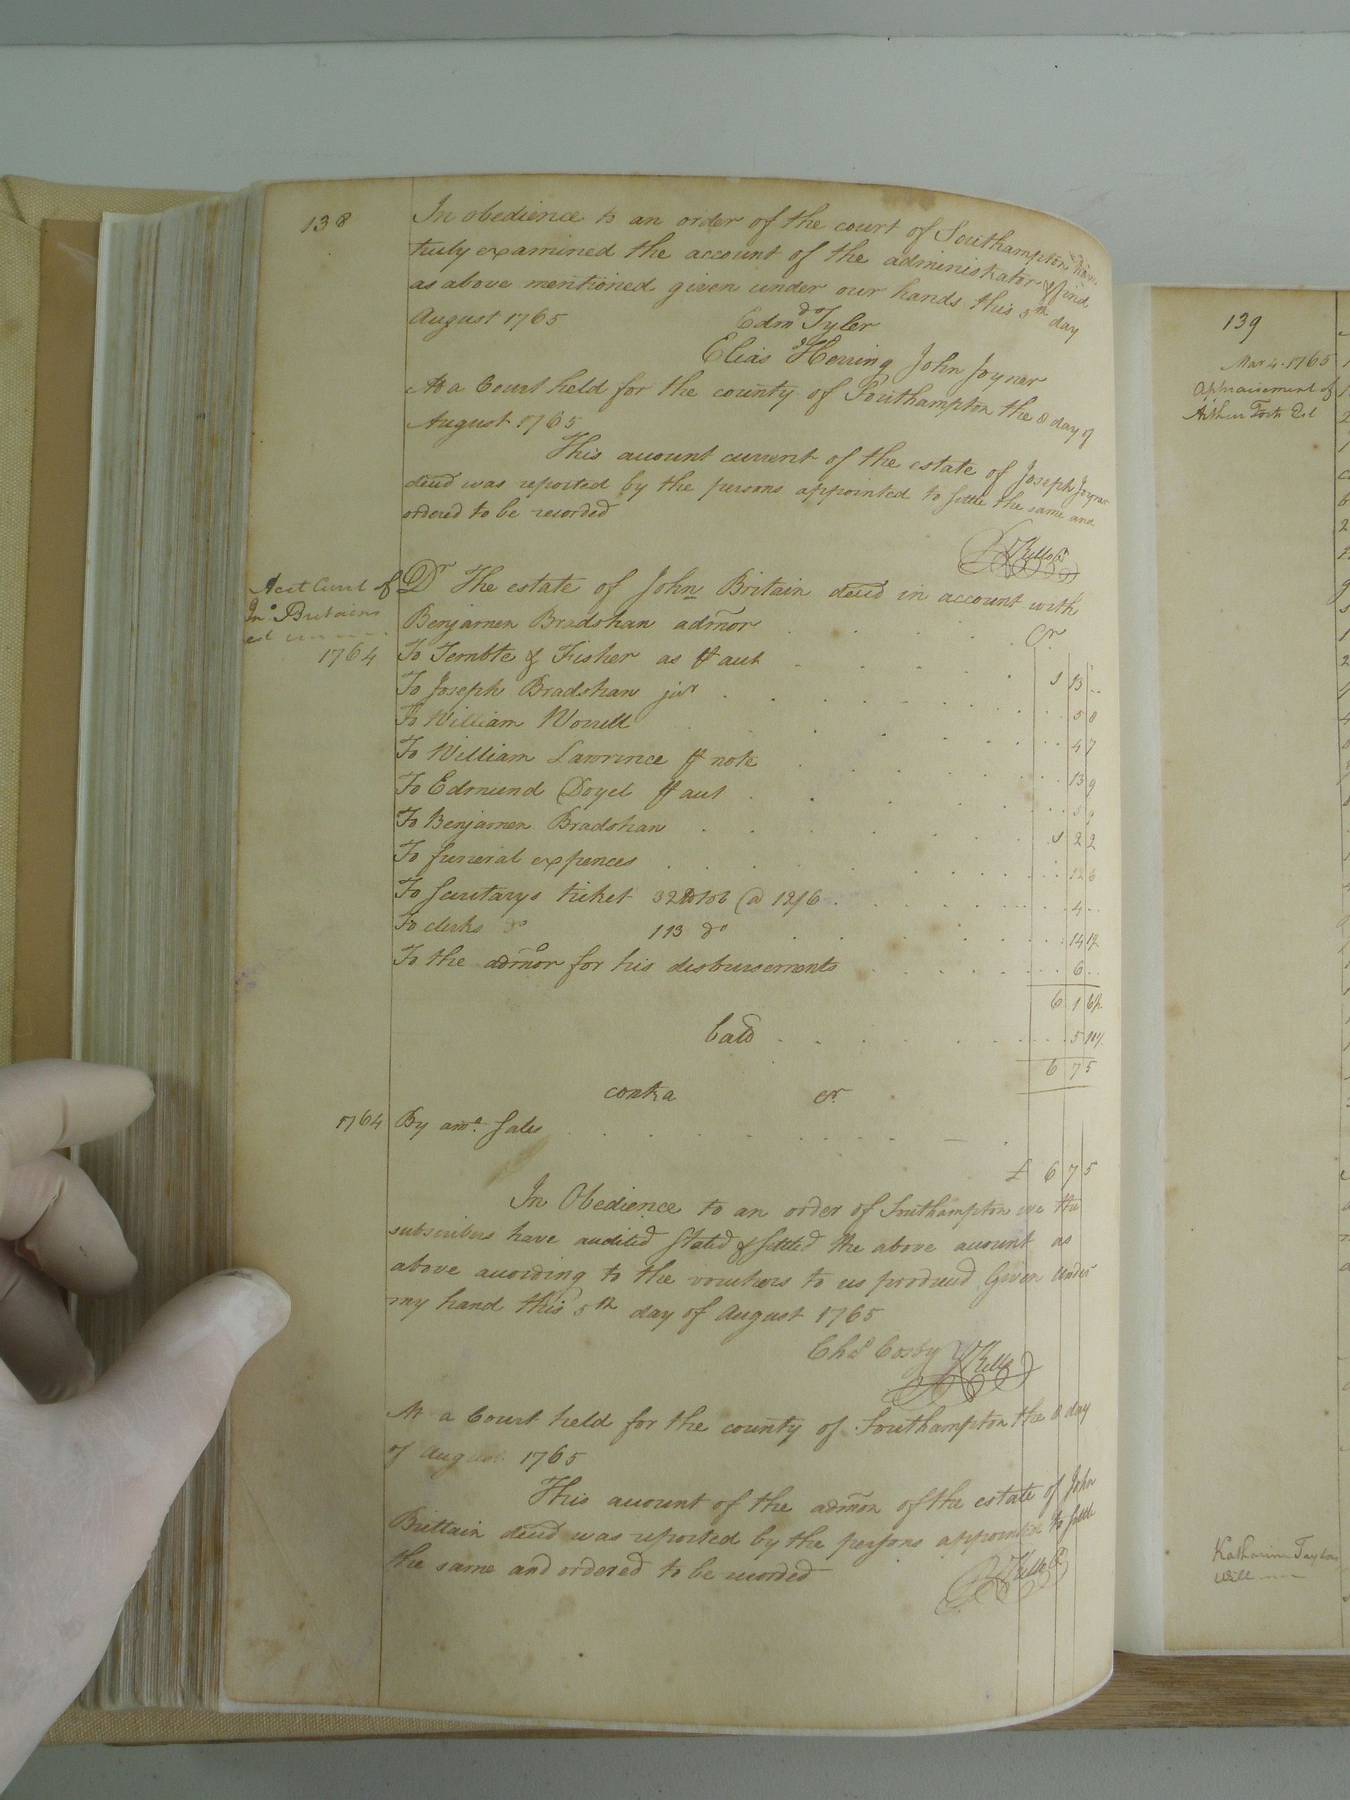 138
In obedience to an order of the court of Southampton have
truly examined the account of the administrator & find
as above mentioned given under our hands this 5th day
August 1765
Edmd Tyler
Elias Herring John Joyner
At a Court held for the county of Southampton the 8 day of
August 1765
This account current of the estate of Joseph Joyner
decd was reported by the persons appointed to settle the same and
ordered to be recorded
R Kello C
Acct Curt of
Jno Britains
Dr The estate of John Britain decd in account with
Benjamen Bradshaw admor Cr
1764
To Fernble & Fisher as ⅌ acct 1 13 ..
To Joseph Bradshaw jur 5 0
To William Worrell 4 7
To William Lawrence ⅌ note 13 9
To Edmund Doyel ⅌ acct 5 9
To Benjamen Bradshaw 1 2 2
To funeral expences 12 6
To secretarys ticket 32 lb tob @ 12/6 4 ..
To clerks do 113 do 14 1½
To the admor for his disbursements 6 ..
6 1 6½
Bald 5 10½
6 7 5
contra cr
1764 By amt Sales
£ 6 7 5
In Obedience to an order of Southampton we the
subscribers have audited stated & settled the above account as
above according to the vouchers to us produced Given under
my hand this 5th day of August 1765
Chas Cosby R Kello
At a Court held for the county of Southampton the 8 day
of August 1765
This account of the admon of the estate of John
Brittain decd was reported by the persons appointed to settle
the same and ordered to be recorded
R Kello C
139
Mar 4. 1765
Appraisement of
Arthur Forts Est
Katharine Taylor
Will